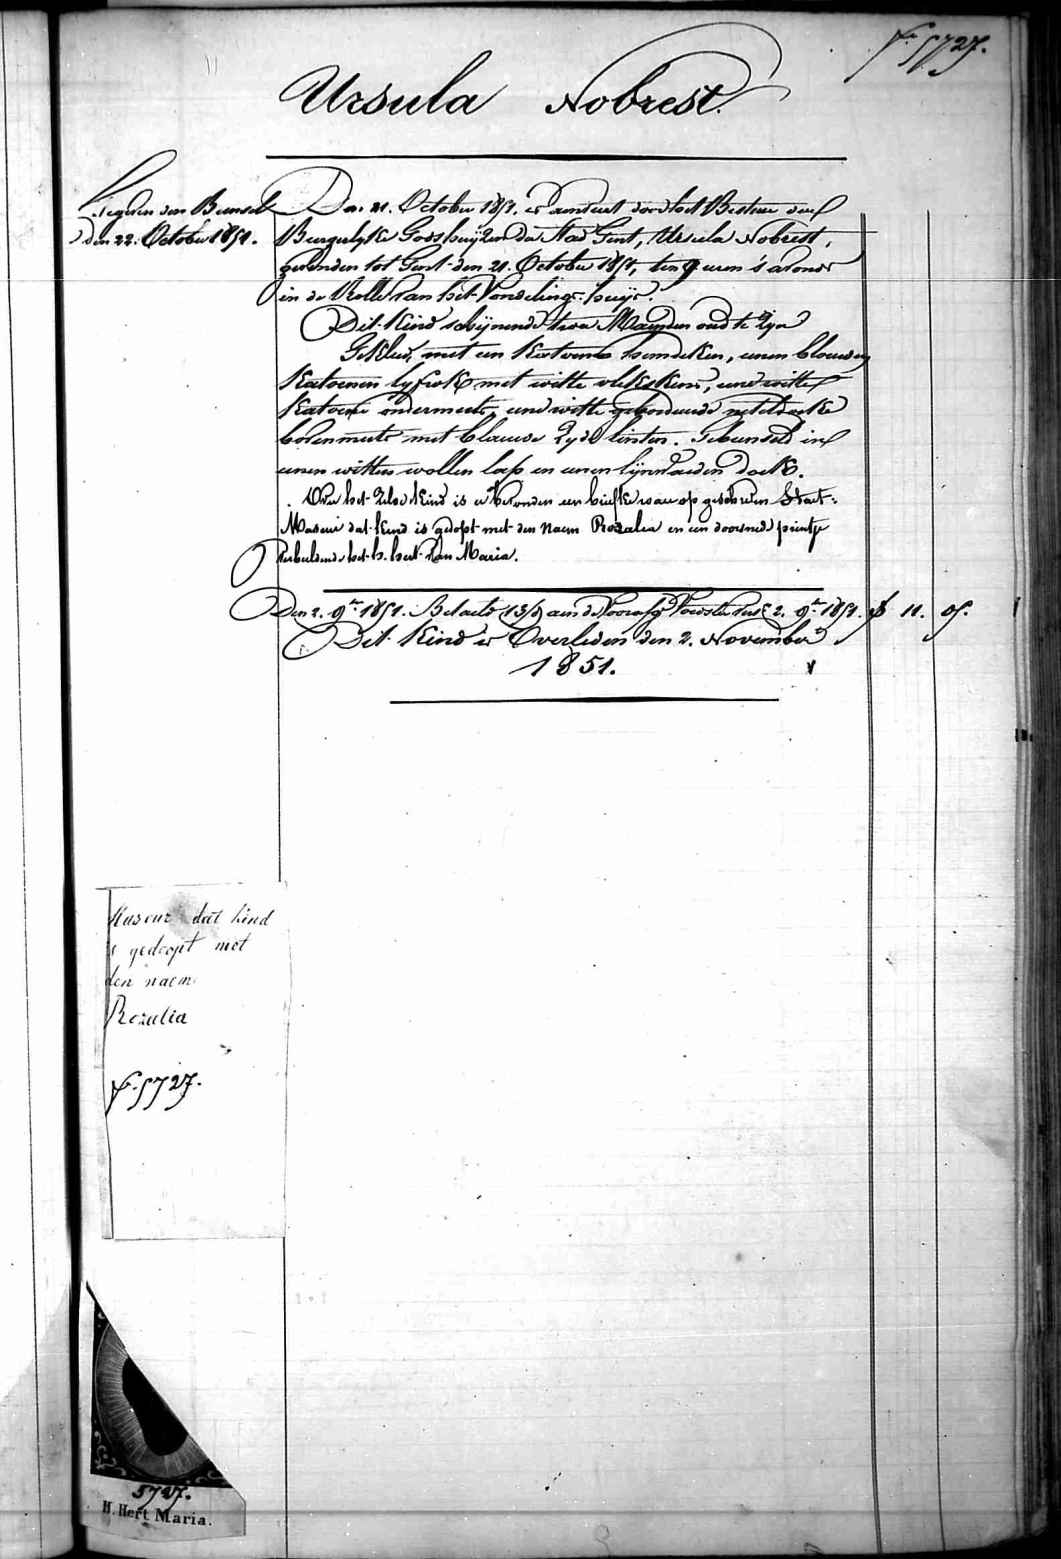 f.° 5727.
Ursula Nobrest.
Gegeven den Bunsel
den 22. October 1851.
Den 21. October 1851. is aenveert door het Bestuer der
Burgerlyke Godshuyzen der Stad Gent, Ursula Nobrest,
gevonden tot Gent den 21. October 1851, ten 9 uren 's avonds
in de Rolle van het Vondelings-huys.
Dit Kind schynende twee Maenden oud te zyn
Gekleed, met een Katoenen hemdeken, eenen blauwen
Katoenen lyfrok met witte vlekskens, eene witte
Katoene ondermuts, eene witte geborduerde neteldoeke
bovenmuts met blauwe zyde linten. Gebunseld in
eenen witten wollen lap en eenen lynwaeden doek.
Over het zelve Kind is er bevonden een briefke waer op geschreven staet:
Maseur dat kind is gedopt met den naem Rozalia en een doorsneden printje
verbeeldende het h. hert van Maria.
Den 2. 9.re 1851. Betaeld 13/0 aen de Voorsz. Voedster tot 2. 9.re 1851. f 11. 05.
Dit Kind is Overleden den 2. November
1851.
Maseur dat kind
is gedoopt met
den naem
Rozalia
f.° 5727.
5727.
H. Hert Maria.